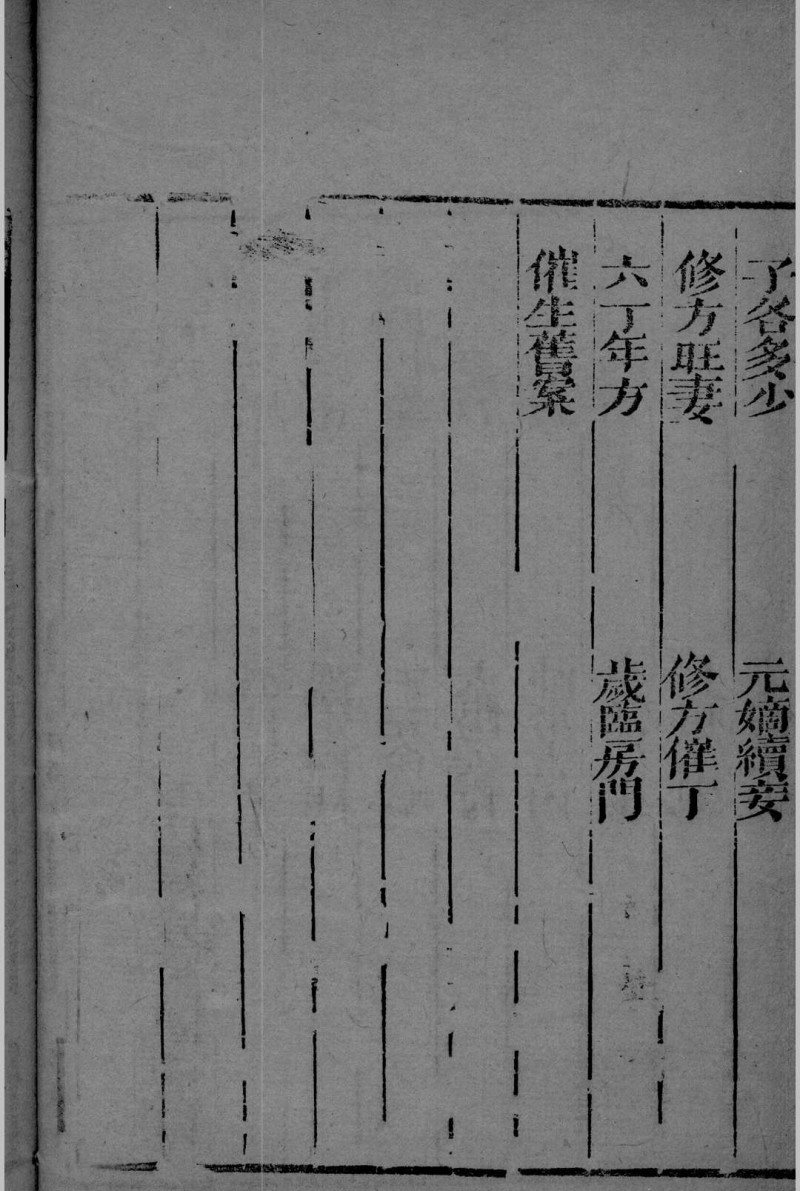 子各多少　元嫡續妾
修方旺妻　修方催丁
六丁年方　歲臨房門
催生舊案